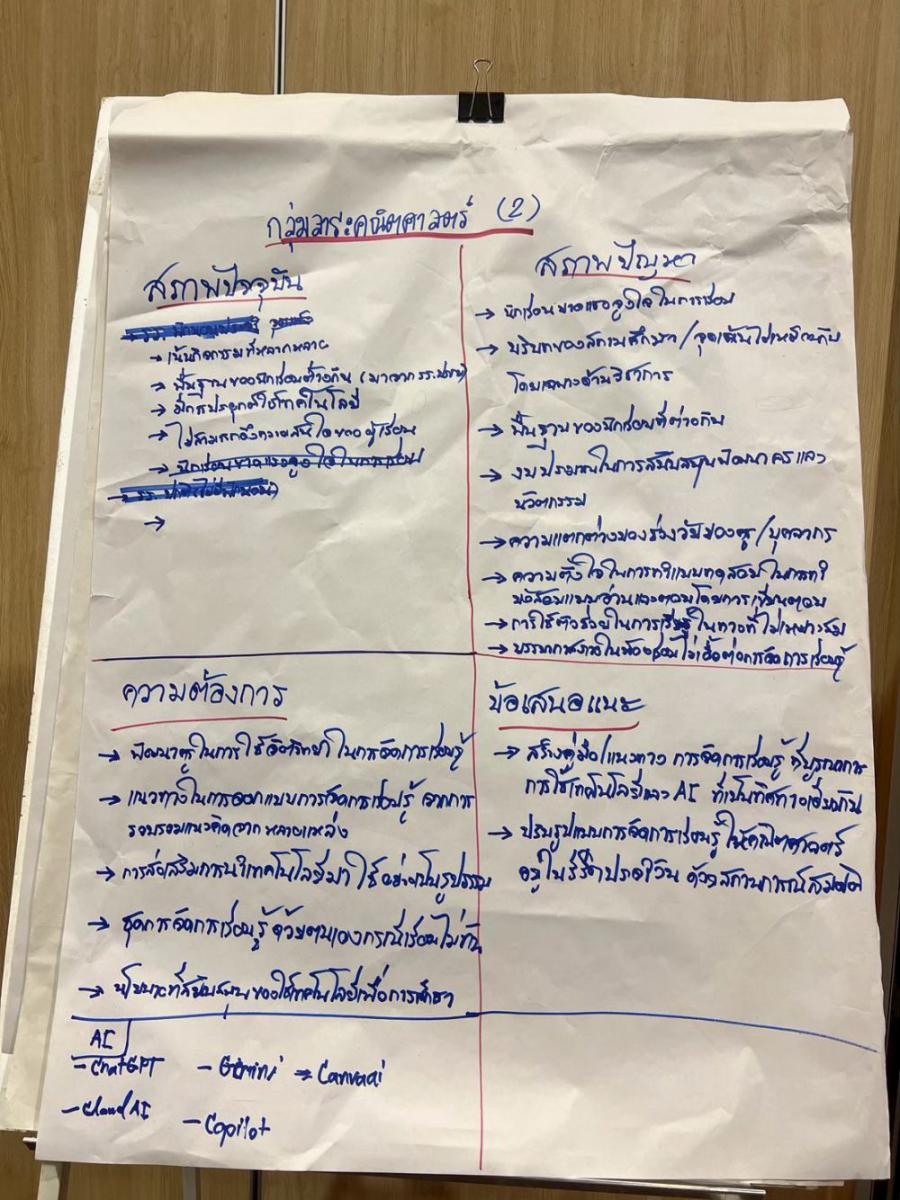 กลุ่มสาระคณิตศาสตร์ (2)
สภาพปัจจุบัน
→ เน้นกิจกรรมที่หลากหลาย
→ พื้นฐานของนักเรียนต่างกัน (มาจาก รร.
→ มีการประยุกต์ใช้เทคโนโลยี
→ ไม่สามารถดึงความสนใจของผู้เรียน
→ นักเรียนขาดแรงจูงใจในการเรียน
→
สภาพปัญหา
→ นักเรียนขาดแรงจูงใจในการเรียน
→ บริบทของสถานศึกษา / จุดเน้นไม่เหมือนกัน
โดยเฉพาะด้านวิชาการ
→ พื้นฐานของนักเรียนที่ต่างกัน
→ งบประมาณในการสนับสนุนพัฒนาครูและ
นวัตกรรม
→ ความแตกต่างของช่วงวัยของครู / บุคลากร
→ ความตั้งใจในการทำแบบทดสอบ ในการทำ
ข้อสอบแบบอ่านและตอบโดยการเขียนตอบ
→ การใช้ตัวช่วยในการเรียนรู้ในทางที่ไม่เหมาะสม
→ บรรยากาศภายในห้องเรียนไม่เอื้อต่อการจัดการเรียนรู้
ความต้องการ
→ พัฒนาครูในการใช้จิตวิทยาในการจัดการเรียนรู้
→ แนวทางในการออกแบบการจัดการเรียนรู้ จากการ
รวบรวมแนวคิดจากหลายแหล่ง
→ การส่งเสริมการนำเทคโนโลยีมาใช้อย่างเป็นรูปธรรม
→ ชุดการจัดการเรียนรู้ด้วยตนเองกรณีเรียนไม่ทัน
→ นโยบายที่สนับสนุนของใช้เทคโนโลยีเพื่อการศึกษา
ข้อเสนอแนะ
→ สร้างคู่มือ/แนวทาง การจัดการเรียนรู้ ที่บูรณาการ
การใช้เทคโนโลยีและ AI ที่เป็นทิศทางเดียวกัน
→ ปรับรูปแบบการจัดการเรียนรู้ ให้คณิตศาสตร์
อยู่ในชีวิตประจำวัน ด้วยสถานการณ์สมมติ
AI
- ChatGPT - Gemini → Canvaai
- Cloud AI - Copilot